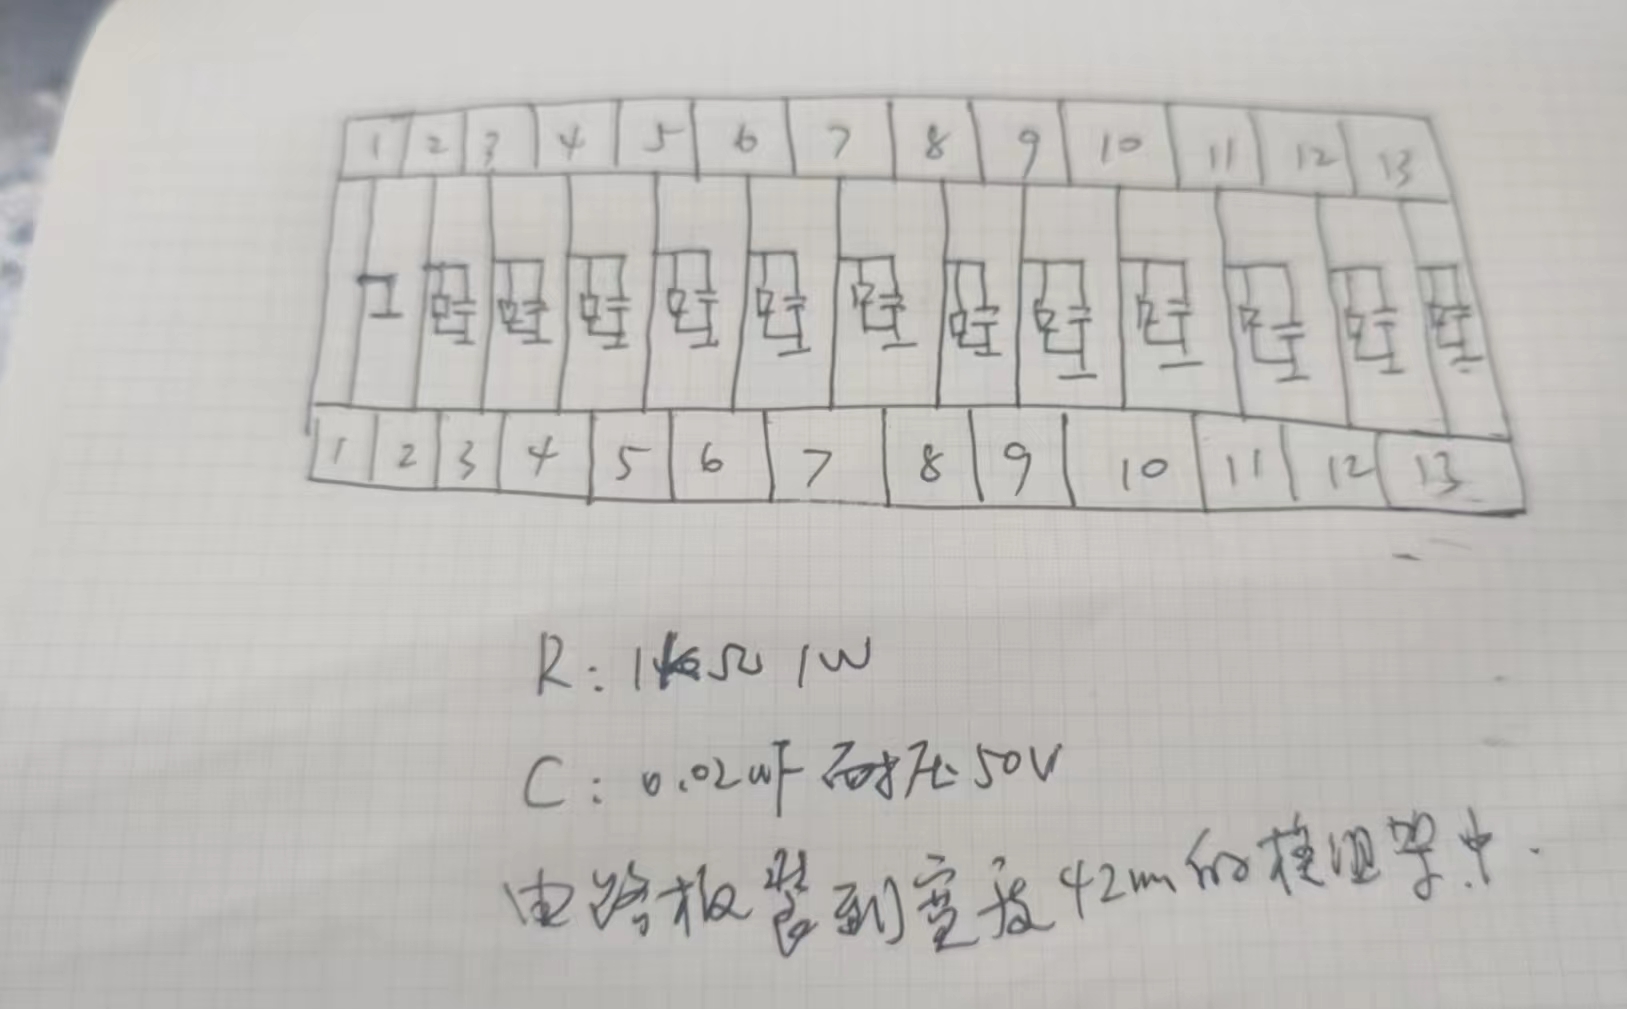 1 2 3 4 5 6 7 8 9 10 11 12 13
1 2 3 4 5 6 7 8 9 10 11 12 13
R: 1kΩ 1W
C: 0.02uF 耐压50V
电路板装到宽度42mm的模组架中.